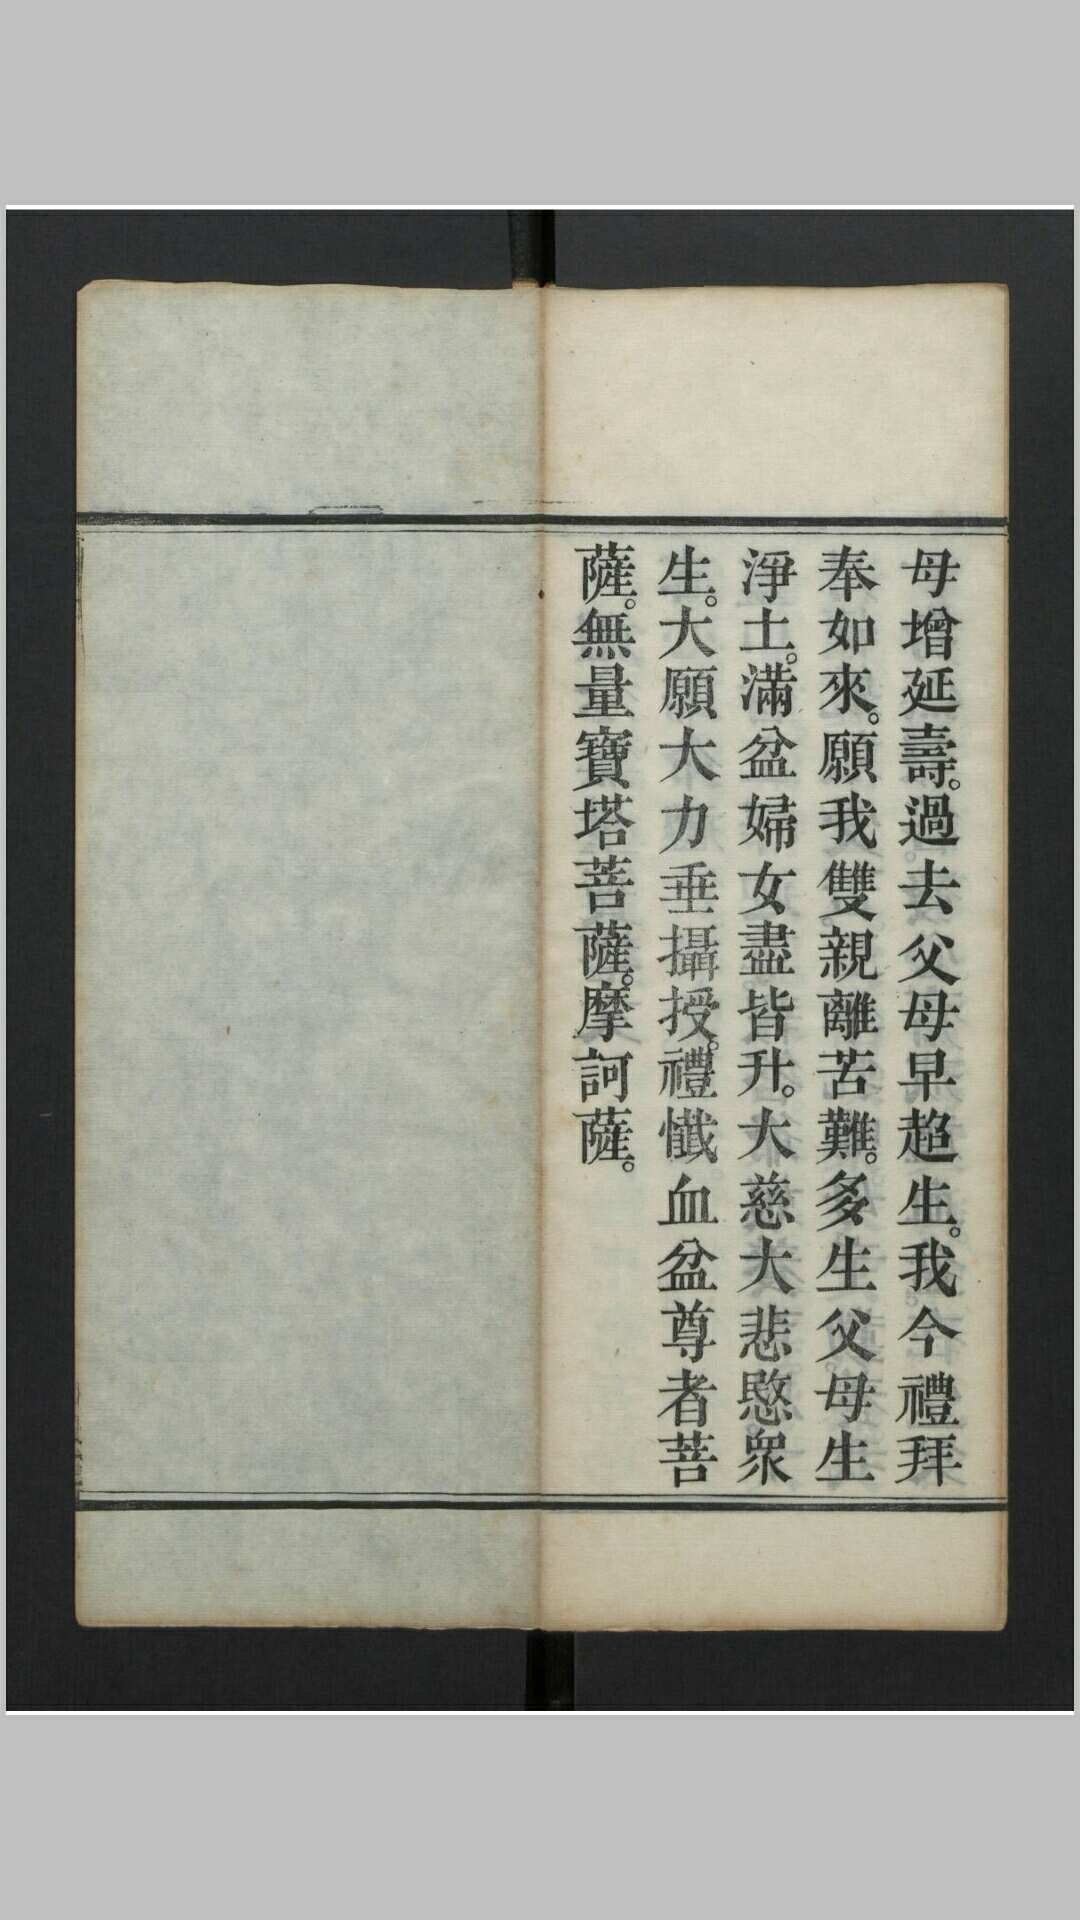 母增延壽。過去父母早超生。我今禮拜
奉如來。願我雙親離苦難。多生父母生
淨土。滿盆婦女盡皆升。大慈大悲愍衆
生。大願大力垂攝授。禮懺血盆尊者菩
薩。無量寶塔菩薩。摩訶薩。